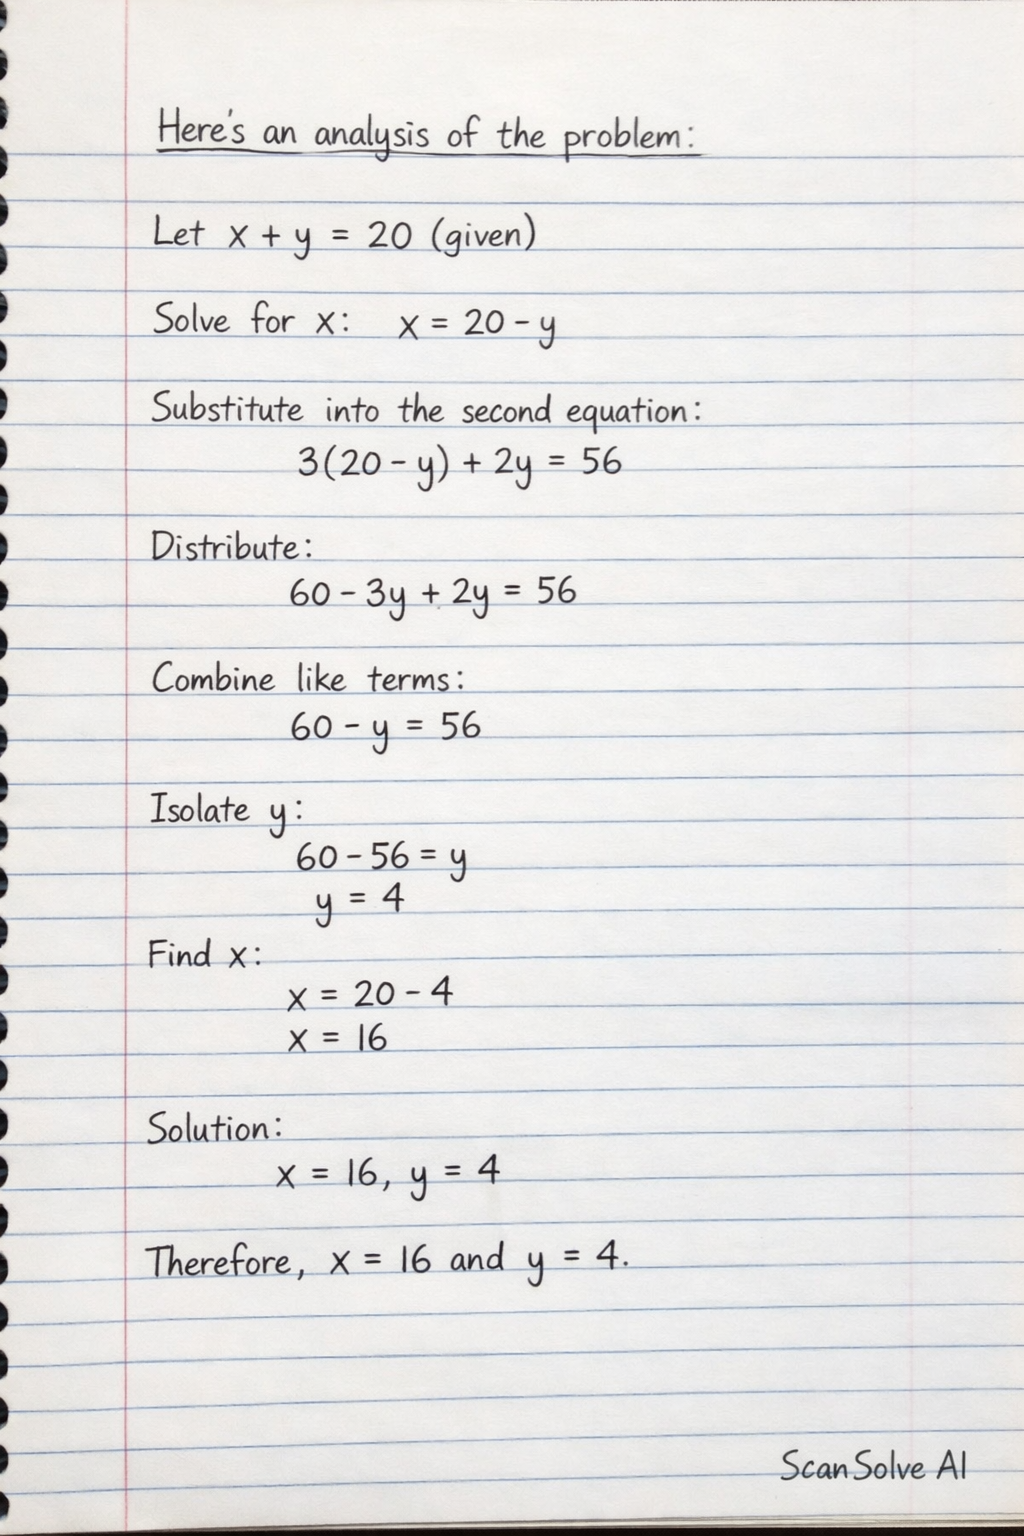 Here's an analysis of the problem:
Let x + y = 20 (given)
Solve for x: x = 20 - y
Substitute into the second equation:
3(20 - y) + 2y = 56
Distribute:
60 - 3y + 2y = 56
Combine like terms:
60 - y = 56
Isolate y:
60 - 56 = y
y = 4
Find x:
x = 20 - 4
x = 16
Solution:
x = 16, y = 4
Therefore, x = 16 and y = 4.
ScanSolve AI